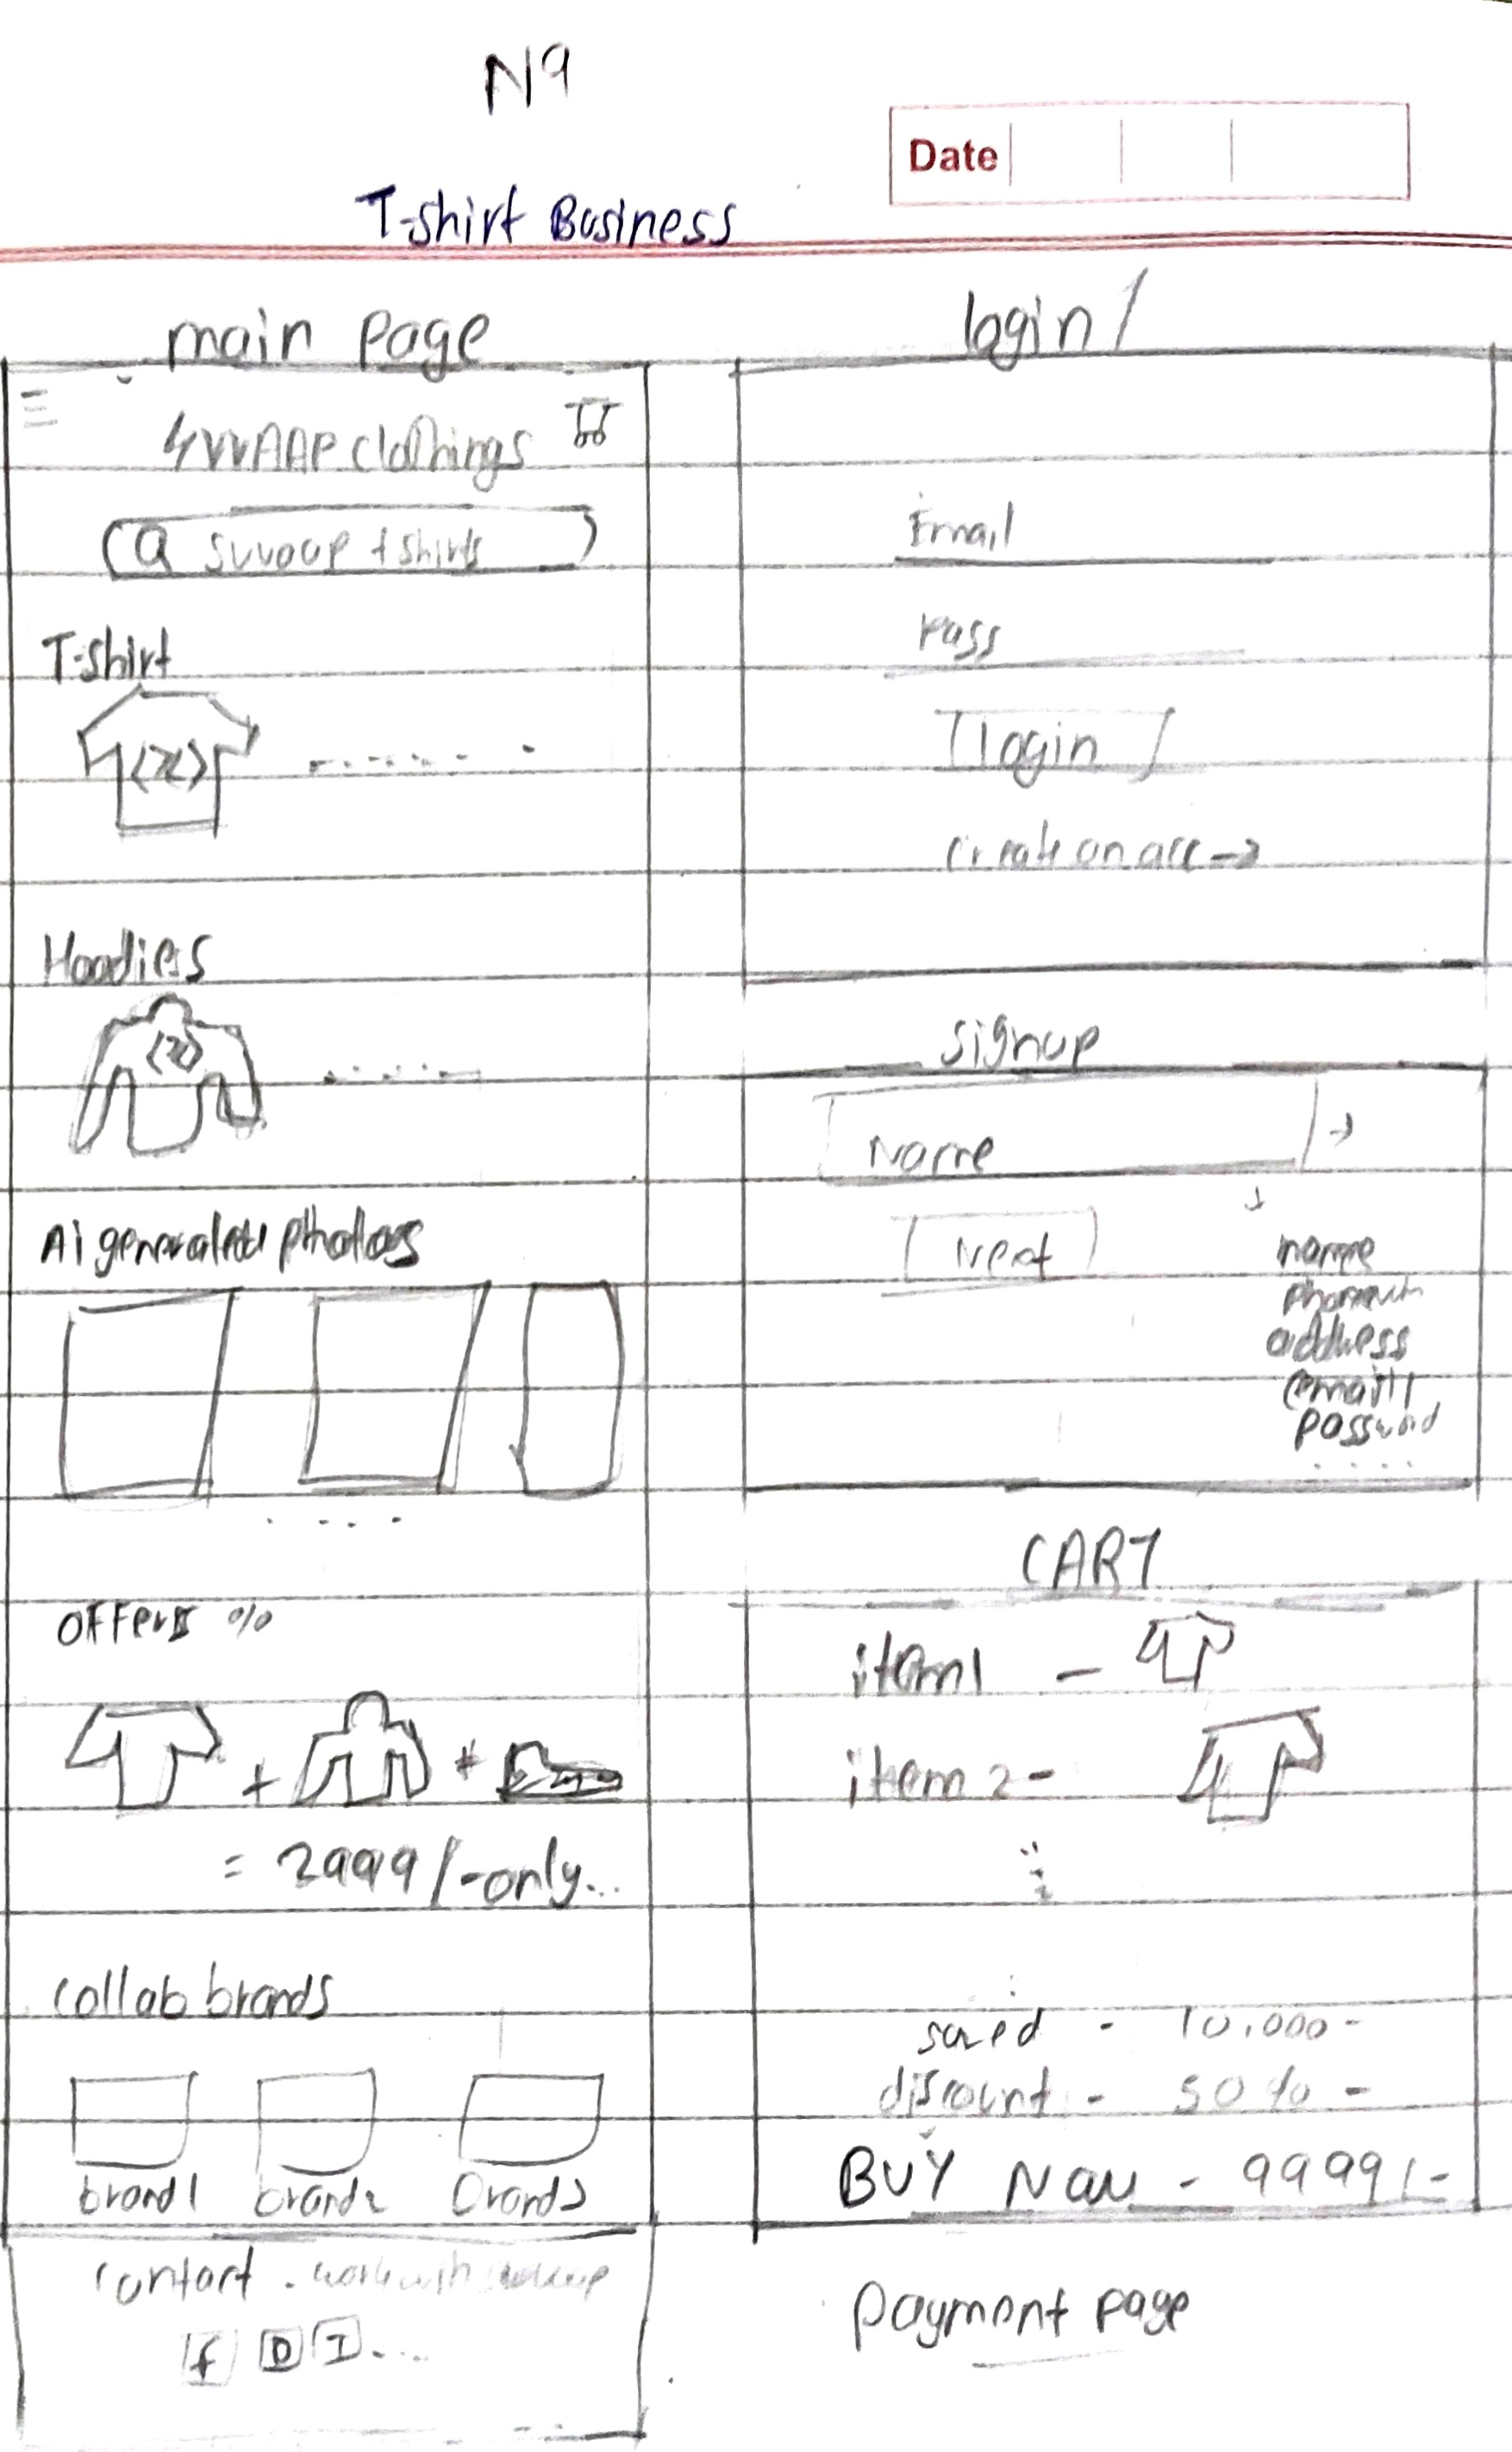 N9
Date
T-shirt Business
main page
clothings
T-shirt
(x)
Hoodies
(x)
Ai generated
offers %
+ + 
= 2999/-only...
collab brands
brand1 brand2 brand3
contact - work with
f D I ...
login/
Email
Pass
login
create an acc →
signup
Name →
Next
name
address
email
password
....
CART
item1 -
item 2 -
saved - 10,000 -
discount - 50% -
BUY Now - 9999/-
payment page